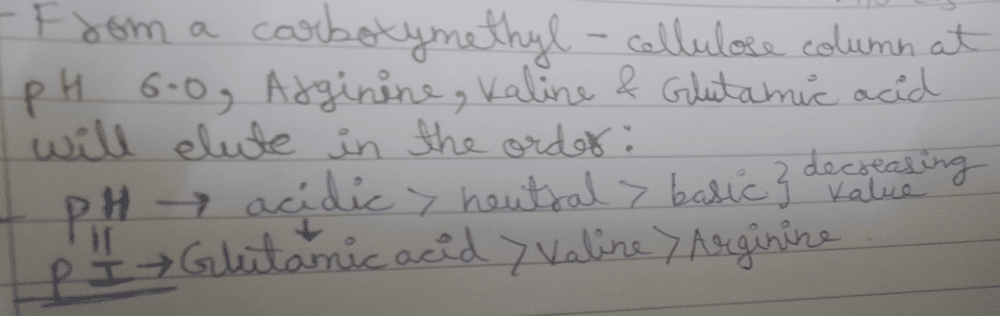 - From a carboxymethyl - cellulose column at
pH 6.0, Arginine, Valine & Glutamic acid
will elute in the order:
pH → acidic > neutral > basic } decreasing value
||
↓
pI → Glutamic acid > Valine > Arginine